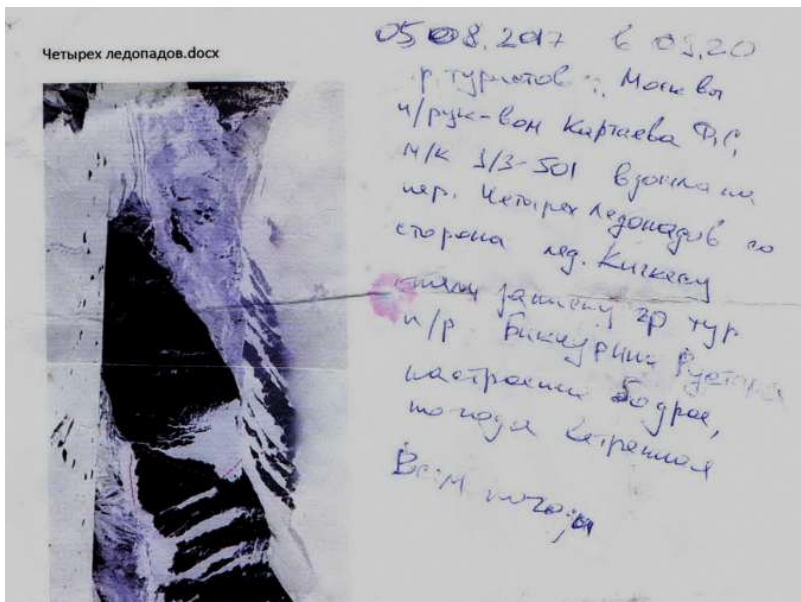 Четырех ледопадов.docx
05.08.2017 в 09.20
туристов г. Москвы
п/рук-вом Картаева Ф.С.
м/к 1/3-501 взошла на
пер. Четырех ледопадов со
стороны лед.
сняли записку гр тур
п/р
настроение бодрое,
погода ветренная
Всем